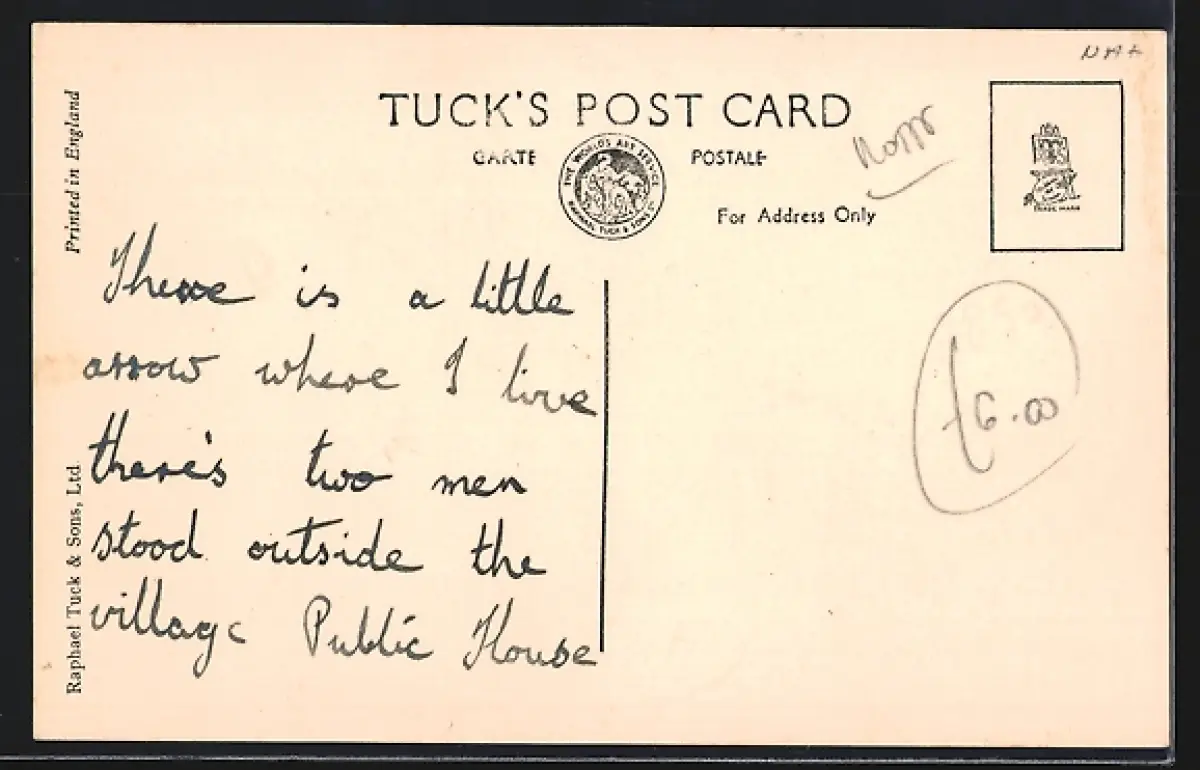 TUCK'S POST CARD
CARTE POSTALE
THE WORLD'S ART SERVICE
RAPHAEL TUCK & SONS LD
For Address Only
TRADE MARK
£6.00
Printed in England
Raphael Tuck & Sons, Ltd.
There is a little
arrow where I live
there's two men
stood outside the
village Public House